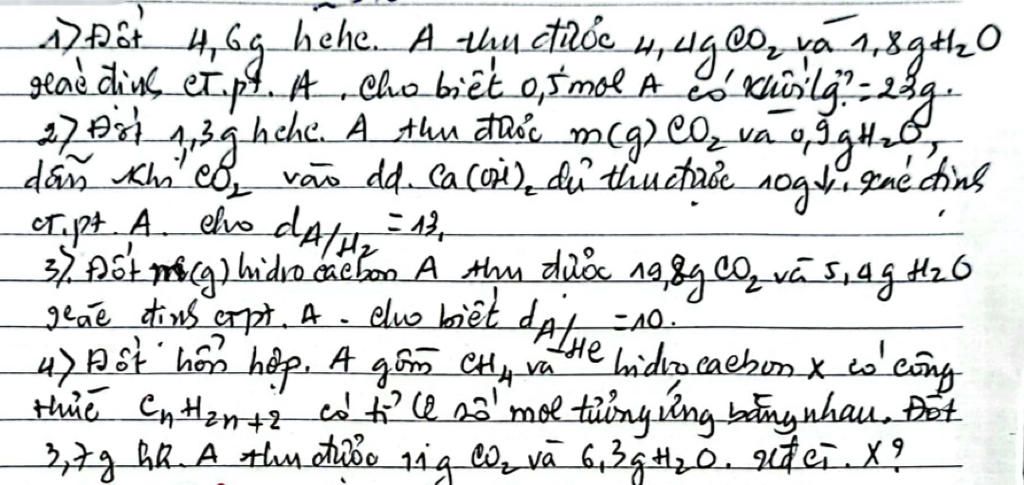 1) Đốt 4,6g hchc. A thu được 4,4g CO₂ và 1,8g H₂O
xác định CT.pt. A. Cho biết 0,5 mol A có khối lg? = 23g.
2) Đốt 1,3g hchc. A thu được m(g) CO₂ và 0,9g H₂O,
dẫn khí CO₂ vào dd. Ca(OH)₂ dư thu được 10g↓. xác định
CT.pt. A. cho d A/H₂ = 13.
3). Đốt m(g) hidro cacbon A thu được 19,8g CO₂ và 5,4g H₂O
xác định ctpt. A. cho biết d A/He = 10.
4) Đốt hỗn hợp. A gồm CH₄ và hidro cacbon X có công
thức CnH2n+2 có tỉ lệ số mol tương ứng bằng nhau. Đốt
3,7g hh. A thu được 11g CO₂ và 6,3g H₂O. xđ ct. X?